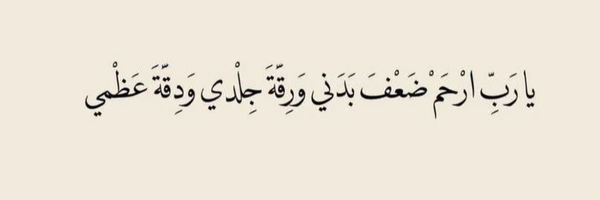 يا رَبِّ ارْحَمْ ضَعْفَ بَدَني وَرِقَّةَ جِلْدي وَدِقَّةَ عَظْمي